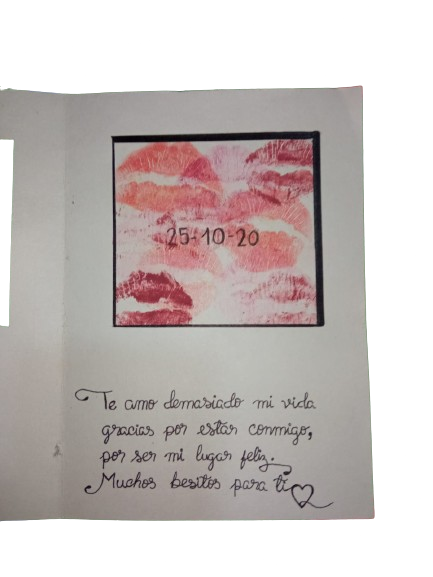 25-10-20
Te amo demasiado mi vida
gracias por estar conmigo,
por ser mi lugar feliz.
Muchos besitos para ti